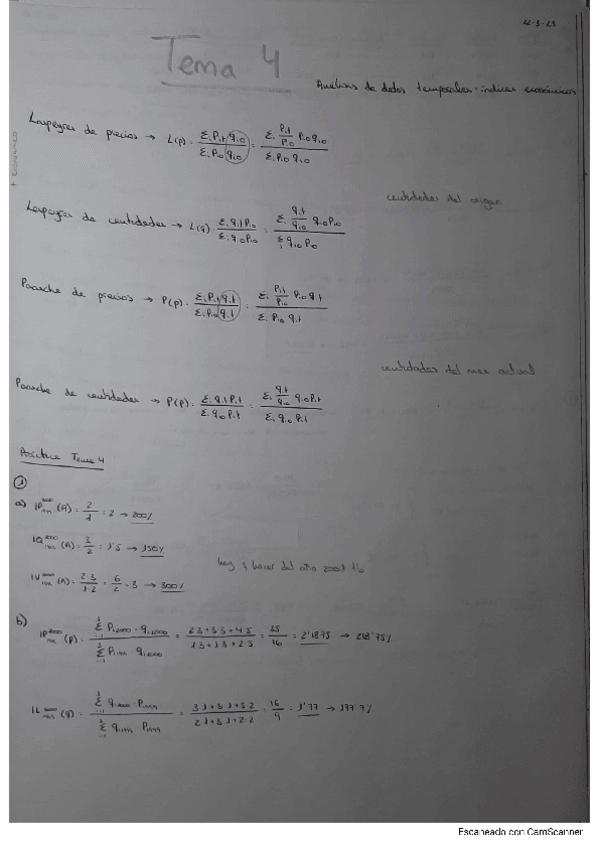 22-3-23
Tema 4
Análisis de datos temporales: índices económicos
Laspeyres de precios → L(p) = Σi Pit qi0 / Σi Pi0 qi0 = Σi Pit/Pi0 Pi0 qi0 / Σi Pi0 qi0
cantidades del origen
Laspeyres de cantidades → L(q) = Σi qit Pi0 / Σi qi0 Pi0 = Σi qit/qi0 qi0 Pi0 / Σi qi0 Pi0
Paasche de precios → P(p) = Σi Pit qit / Σi Pi0 qit = Σi Pit/Pi0 Pi0 qit / Σi Pi0 qit
cantidades del mes actual
Paasche de cantidades → P(p) = Σi qit Pit / Σi qi0 Pit = Σi qit/qi0 qi0 Pit / Σi qi0 Pit
Práctica Tema 4
①
a) IP 2000 1999 (A) = 2/1 = 2 → 200%
IQ 2000 1999 (A) = 3/2 = 1'5 → 150%
IV 2000 1999 (A) = 2·3/1·2 = 6/2 = 3 → 300%
b)
IP 2000 1999 (p) = Σ Pi2000 · qi2000 / Σ Pi1999 qi2000 = 2·3+3·3+4·5 / 1·3+1·3+2·5 = 35/16 = 2'1875 → 218'75%
IL 2000 1999 (q) = Σ qi2000 · Pi1999 / Σ qi1999 · Pi1999 = 3·1+3·1+5·2 / 2·1+3·1+2·2 = 16/9 = 1'77 → 177'7%
Escaneado con CamScanner